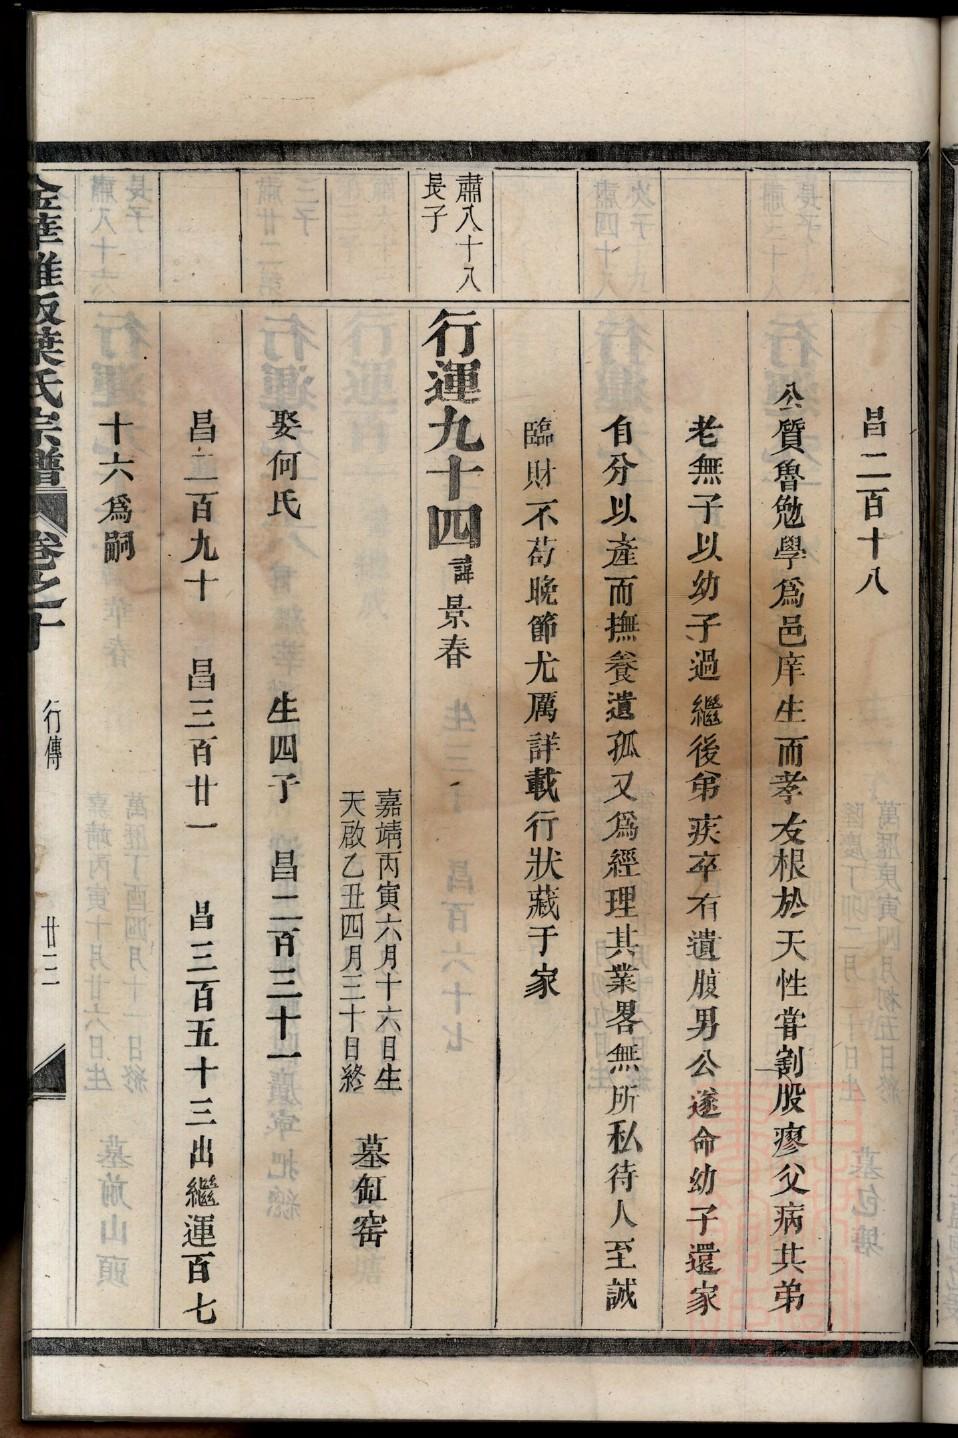 昌二百十八
公質魯勉學爲邑庠生而孝友根於天性甞割股瘳父病其弟
老無子以幼子過繼後弟疾卒有遺腹男公遂命幼子還家
自分以產而撫養遺孤又爲經理其業畧無所私待人至誠
臨財不苟晚節尤厲詳載行狀藏于家
肅八十八
長子
行運九十四 諱景春
嘉靖丙寅六月十六日生
天啟乙丑四月三十日終
墓缸窑
娶何氏 生四子 昌二百三十一
昌二百九十 昌三百廿一 昌三百五十三出繼運百七
十六爲嗣
金華 坂葉氏宗譜 卷之十 行傳 廿三